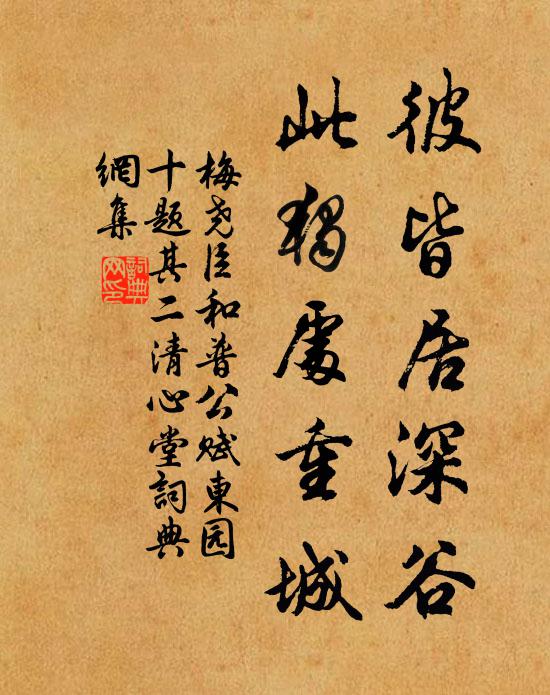 彼皆居深谷
此独處重城
梅尧臣和普公赋東园
十题其二清心堂詞典
網集
詞典
网印